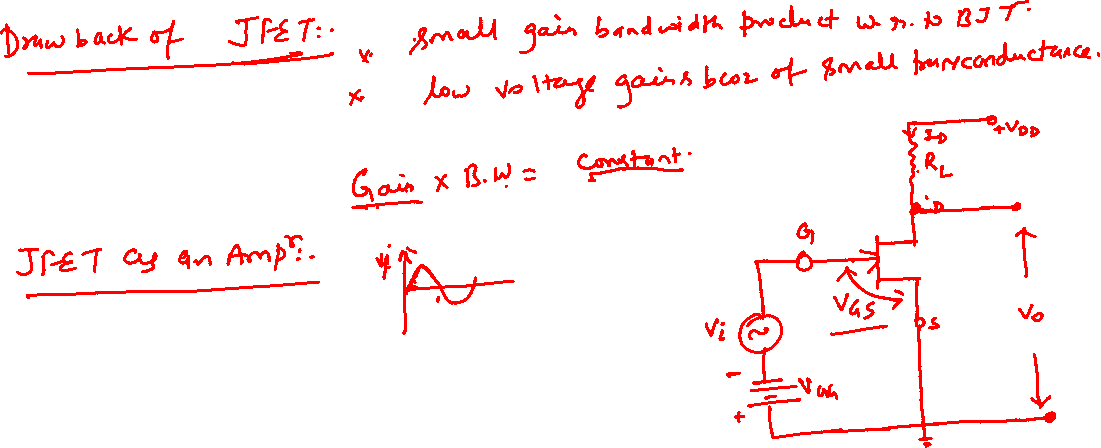 Drawback of JFET:.
* small gain bandwidth product w.r. to BJT.
* low voltage gains bcoz of small transconductance.
Gain x B.W = Constant.
JFET as an Ampr:.
Vi
+VDD
ID
RL
D
G
VGS
S
Vi
Vo
-
VGG
+